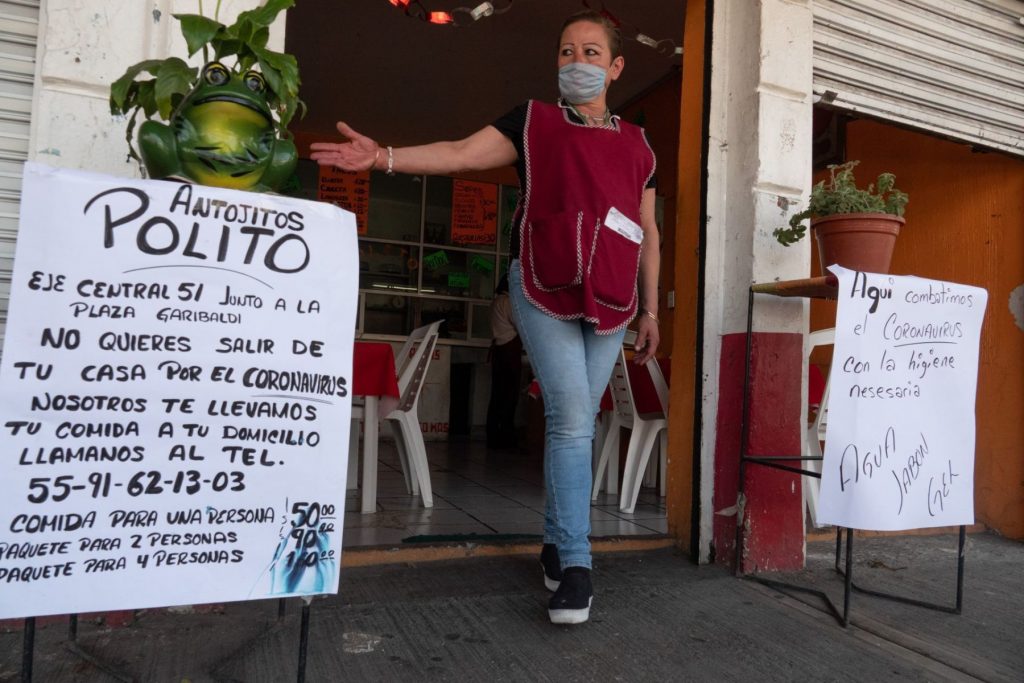 ANTOJITOS
POLITO
EJE CENTRAL 51 JUNTO A LA
PLAZA GARIBALDI
NO QUIERES SALIR DE
TU CASA POR EL CORONAVIRUS
NOSOTROS TE LLEVAMOS
TU COMIDA A TU DOMICILIO
LLAMANOS AL TEL.
55-91-62-13-03
COMIDA PARA UNA PERSONA $50.00
PAQUETE PARA 2 PERSONAS 90
PAQUETE PARA 4 PERSONAS
Aqui combatimos
el CORONAVIRUS
con la higiene
nesesaria
AGUA
JABON
GEL